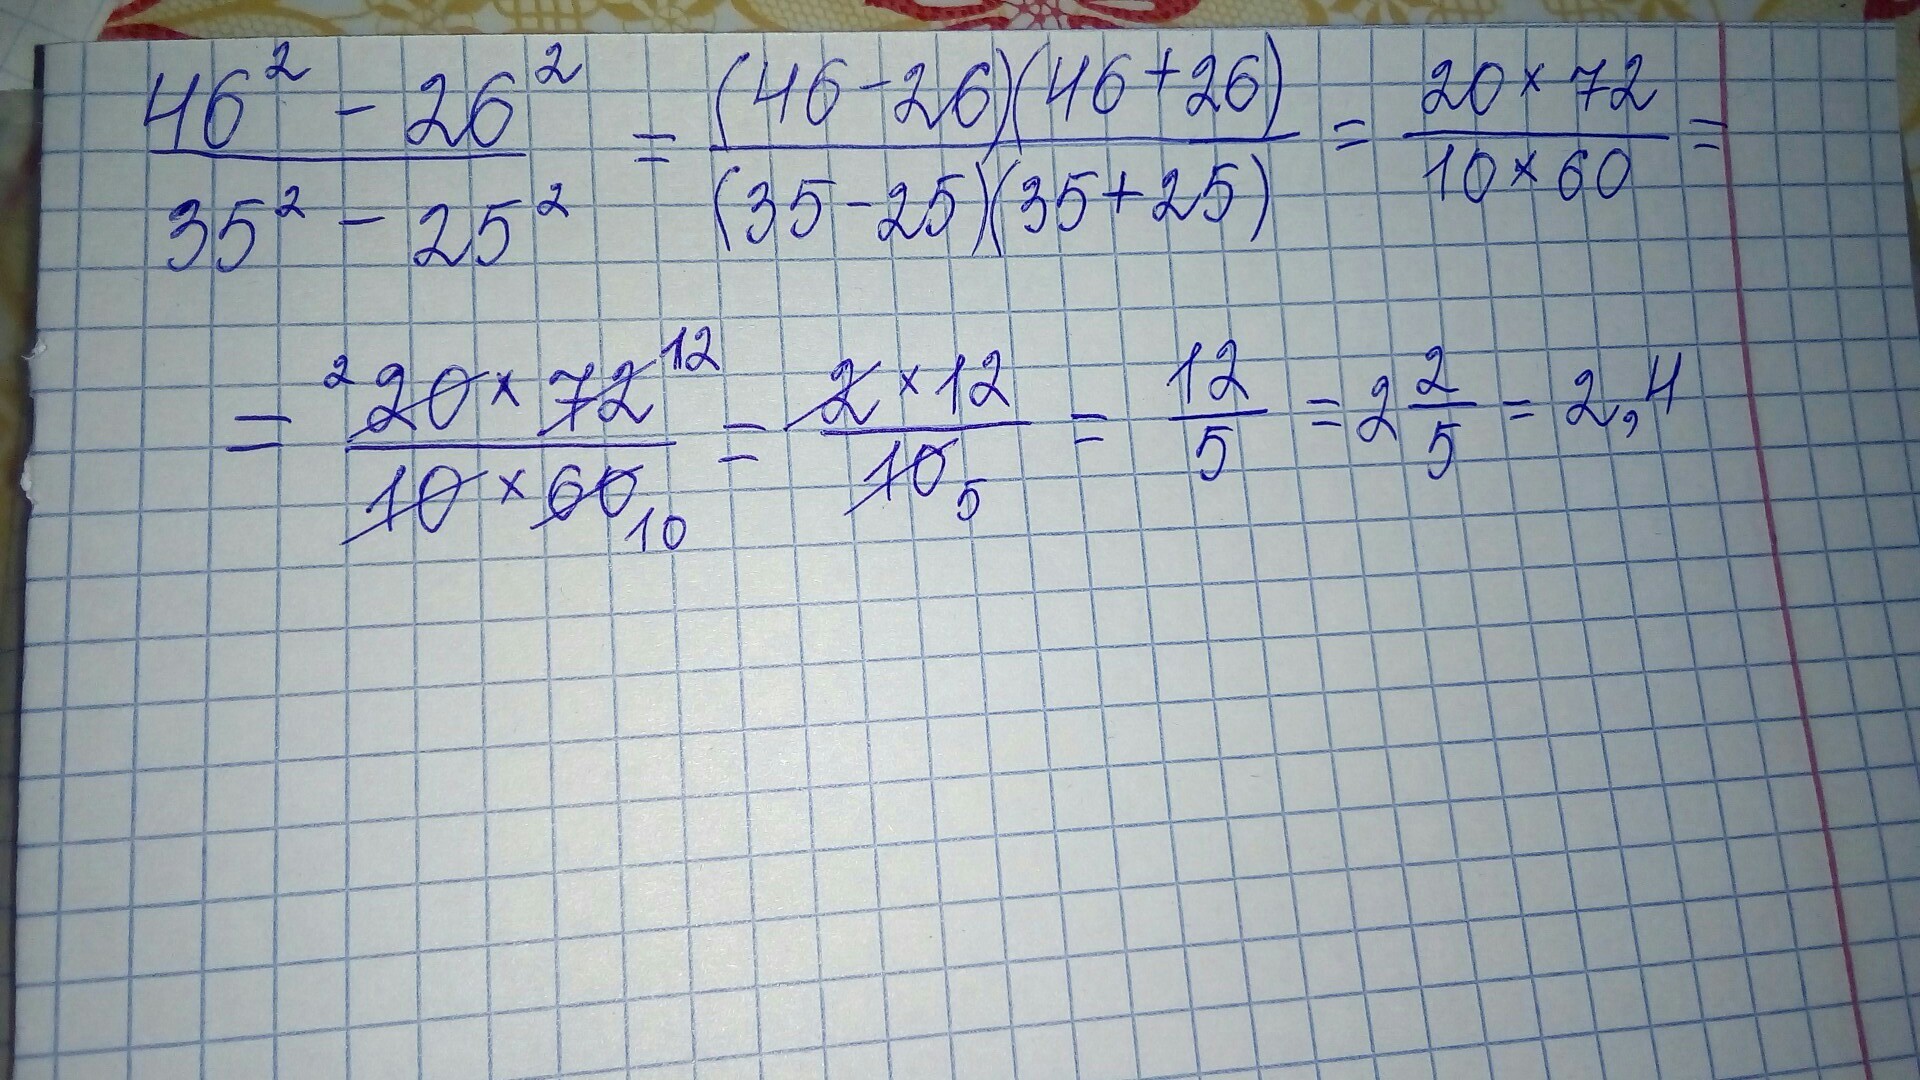 46² - 26² / 35² - 25² = (46-26)(46+26) / (35-25)(35+25) = 20 × 72 / 10 × 60 =
= ² 20 × 72 12 / 10 × 60 10 = 2 × 12 / 10 5 = 12 / 5 = 2 2/5 = 2,4